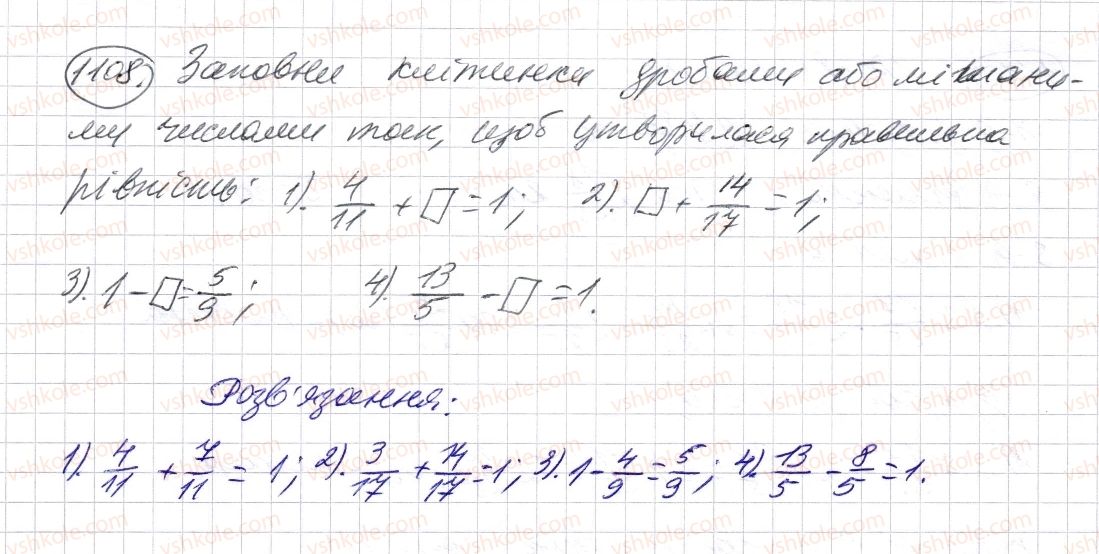 1108. Заповни клітинки дробами або мішани-
ми числами так, щоб утворилася правильна
рівність: 1). 4/11 + □ = 1; 2). □ + 14/17 = 1;
3). 1 - □ = 5/9; 4). 13/5 - □ = 1.
Розв'язання:
1). 4/11 + 7/11 = 1; 2). 3/17 + 14/17 = 1; 3). 1 - 4/9 = 5/9; 4). 13/5 - 8/5 = 1.